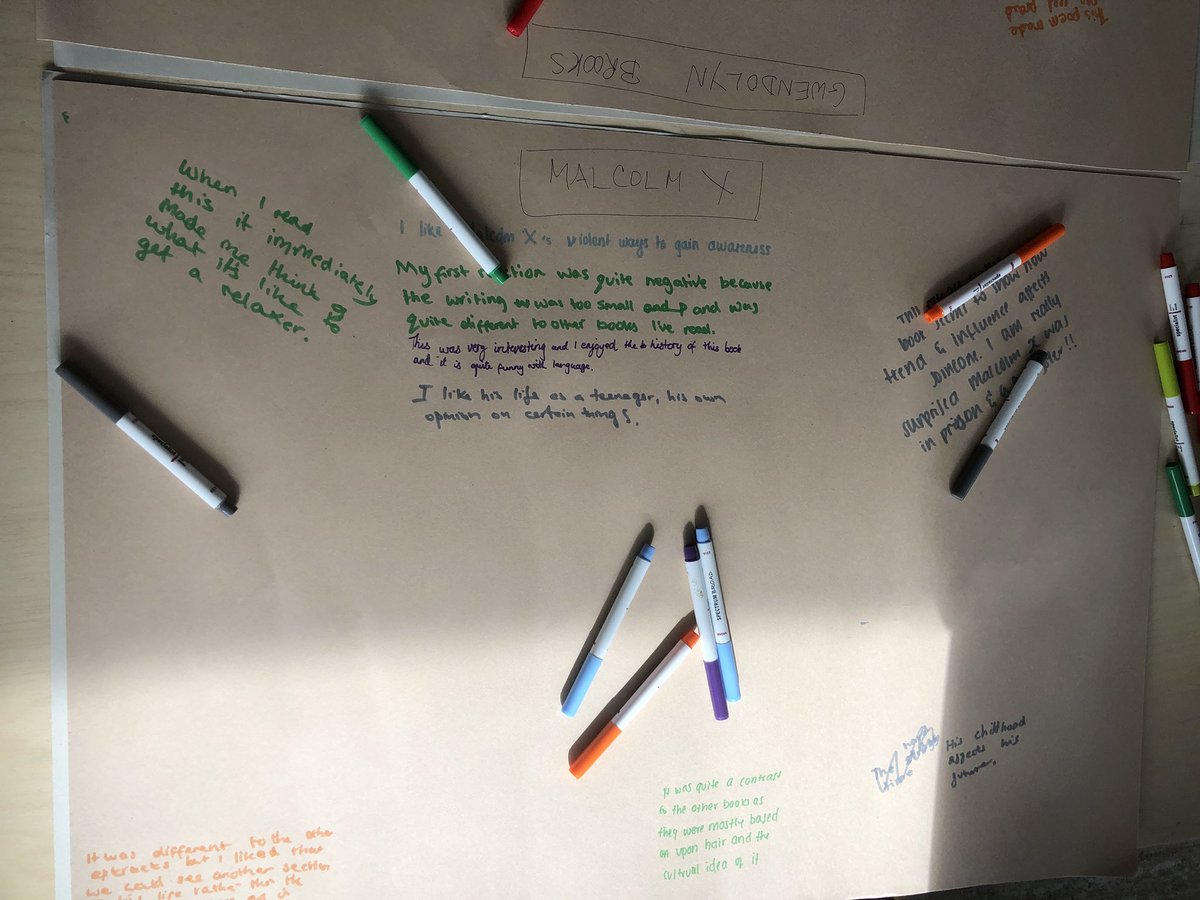 This poem made
proud
GWENDOLYN BROOKS
MALCOLM X
When I read
this it immediately
made me think of
what it's like to
get a relaxer.
I like Malcolm X's violent ways to gain awareness
My first reaction was quite negative because
the writing was too small and and was
quite different to other books I've read.
This was very interesting and I enjoyed the history of this book
and it is quite funny with language.
I like his life as a teenager, his own
opinion on certain things.
This
book seems to show how
trend & influence affects
. I am really
surprised Malcolm X was
in prison & a !!
SPECTRUM BROAD
The
His childhood
affects his
future.
It was quite a contrast
to the other books as
they were mostly based
on upon hair and the
cultrual idea of it
It was different to the other
extracts but I liked that
we could see another section
of his life rather than the